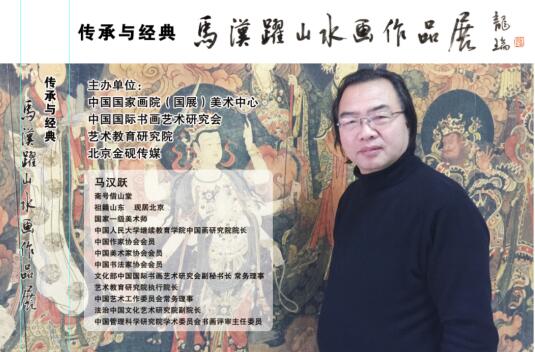 传承与经典 馬漢躍山水画作品展 龍瑞
传承与经典
馬漢躍山水画作品展
主办单位：
中国国家画院（国展）美术中心
中国国际书画艺术研究会
艺术教育研究院
北京金砚传媒
马汉跃
斋号借山堂
祖籍山东 现居北京
国家一级美术师
中国人民大学继续教育学院中国画研究院院长
中国作家协会会员
中国美术家协会会员
中国书法家协会会员
文化部中国国际书画艺术研究会副秘书长 常务理事
艺术教育研究院执行院长
中国艺术工作委员会常务理事
法治中国文化艺术研究院副院长
中国管理科学研究院学术委员会书画评审主任委员